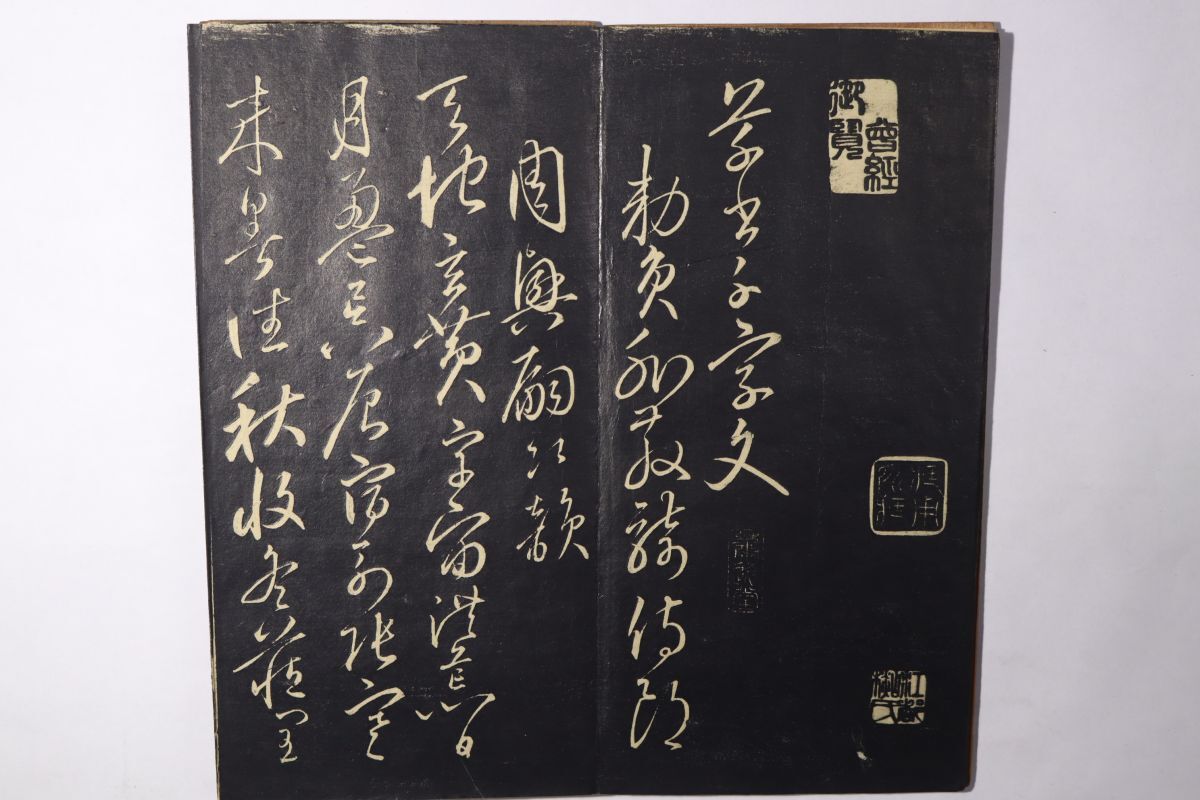 曾經
御覽
草書千字文
敕員外散騎侍郎
周興嗣次韻
天地玄黃宇宙洪荒日
月盈昃辰宿列張寒
來暑往秋收冬藏閏